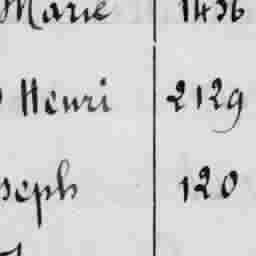 Marie 1436
Henri 2129
seph 120